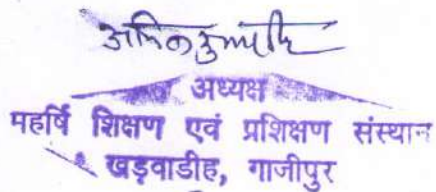 अध्यक्ष
महर्षि शिक्षण एवं प्रशिक्षण संस्थान
खड़वाडीह, गाजीपुर